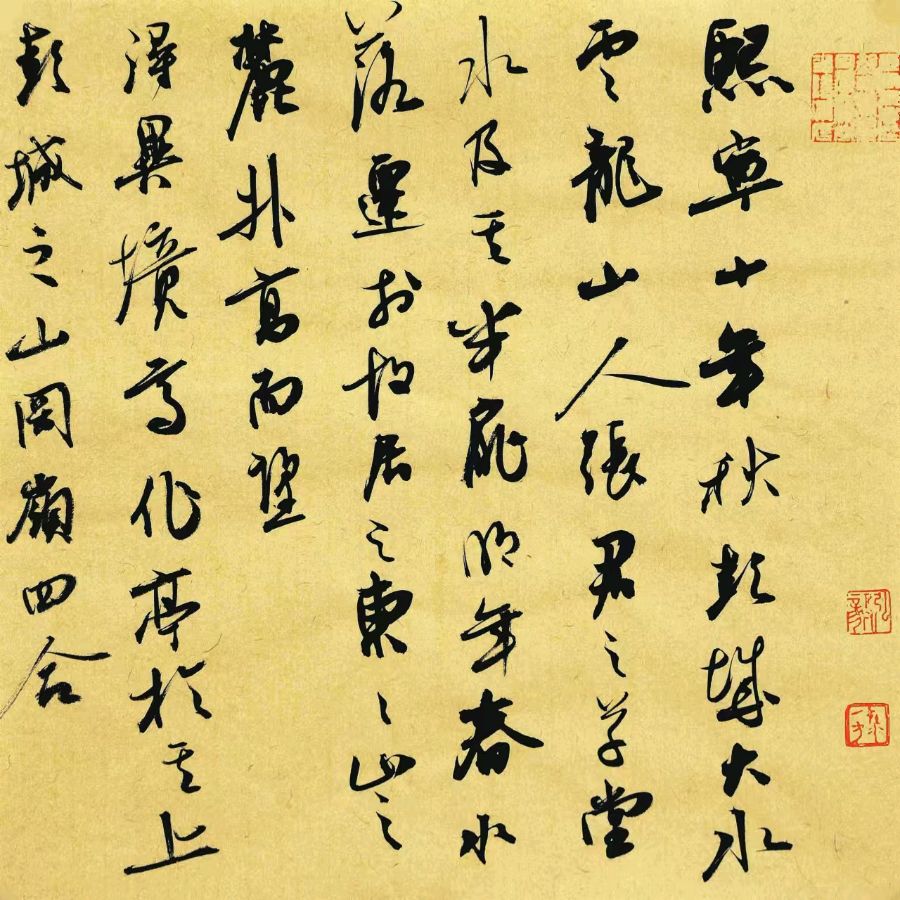 熙寧十年秋彭城大水
雲龍山人張君之草堂
水及其半扉明年春水
落遷於故居之東〻山之
麓升高而望
得異境焉作亭於其上
彭城之山岡嶺四合